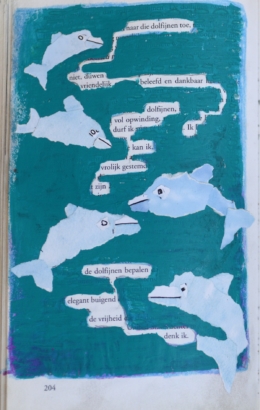 naar die dolfijnen toe,
niet, duwen
vriendelijk
beleefd en dankbaar
dolfijnen,
vol opwinding,
durf ik
Ik
kan ik,
vrolijk gestemd
zijn
de dolfijnen bepalen
elegant buigend
de vrijheid
denk ik.
204